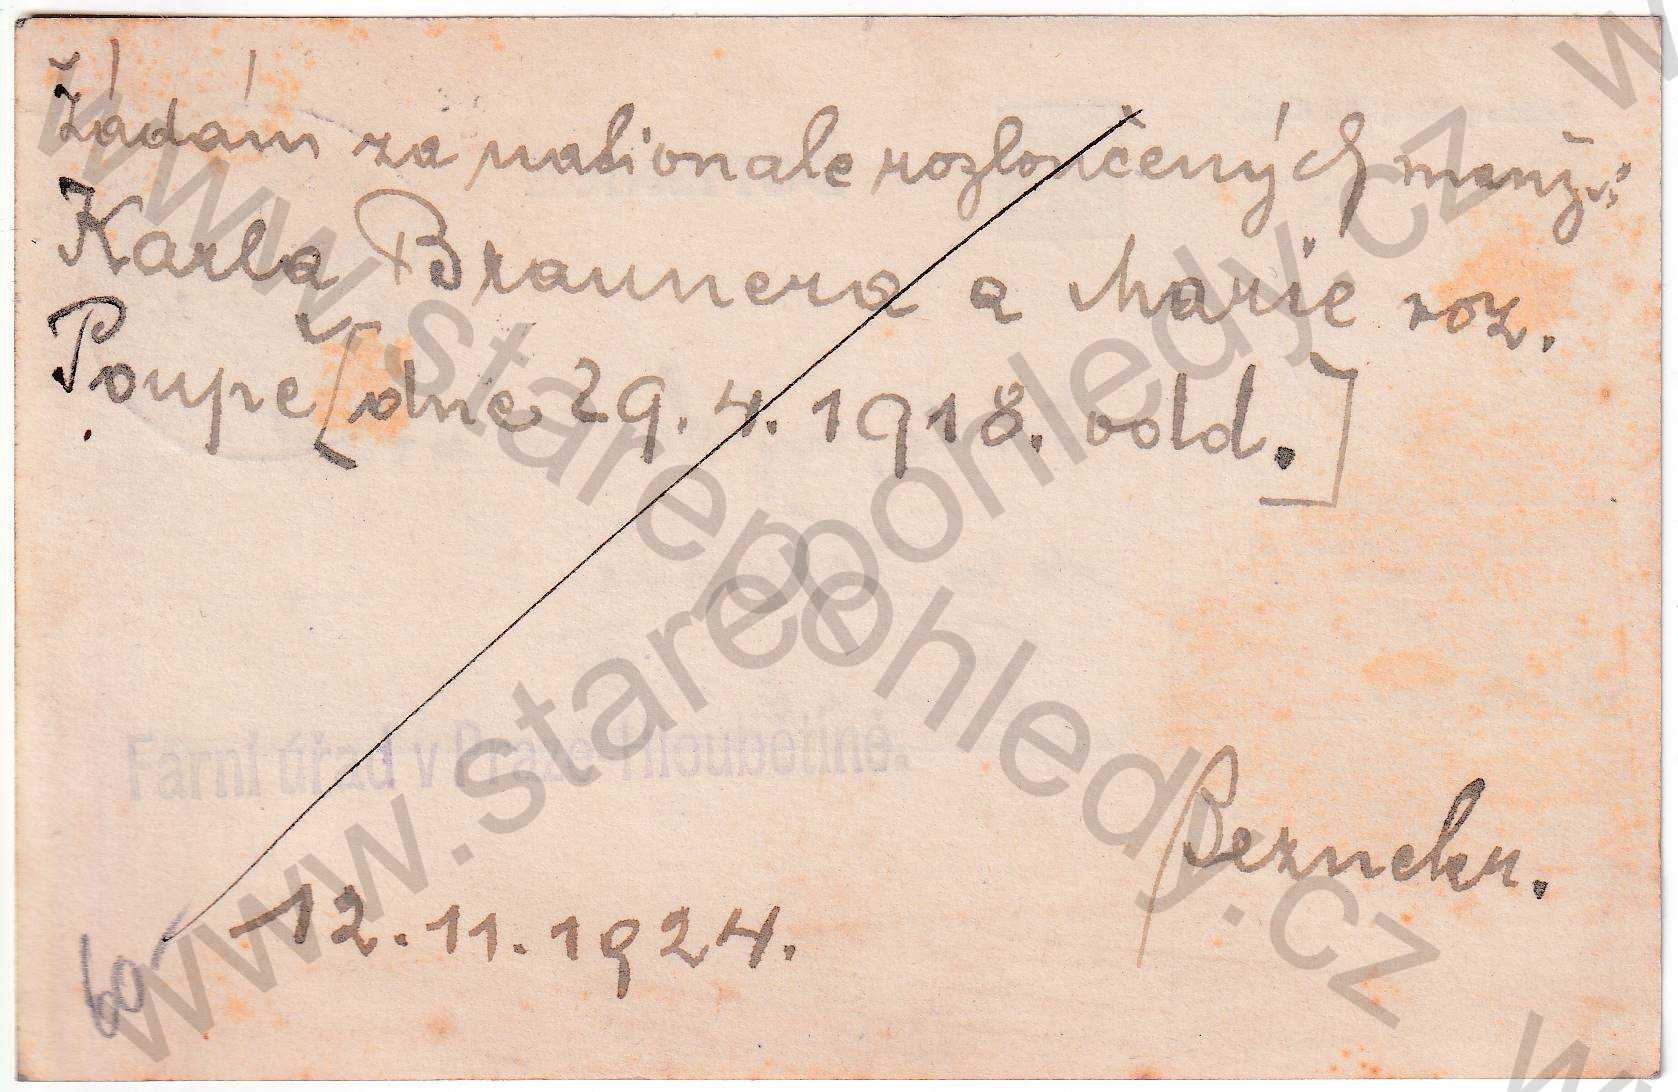 Žádám za nationale rozloučených manž.
Karla Braunera a Marie roz.
Poupě [dne 29. 4. 1918. odd.]
Farní úřad v Praze-Hloubětíně.
12. 11. 1924.
60
www.starepohledy.cz
www.starepohledy.cz